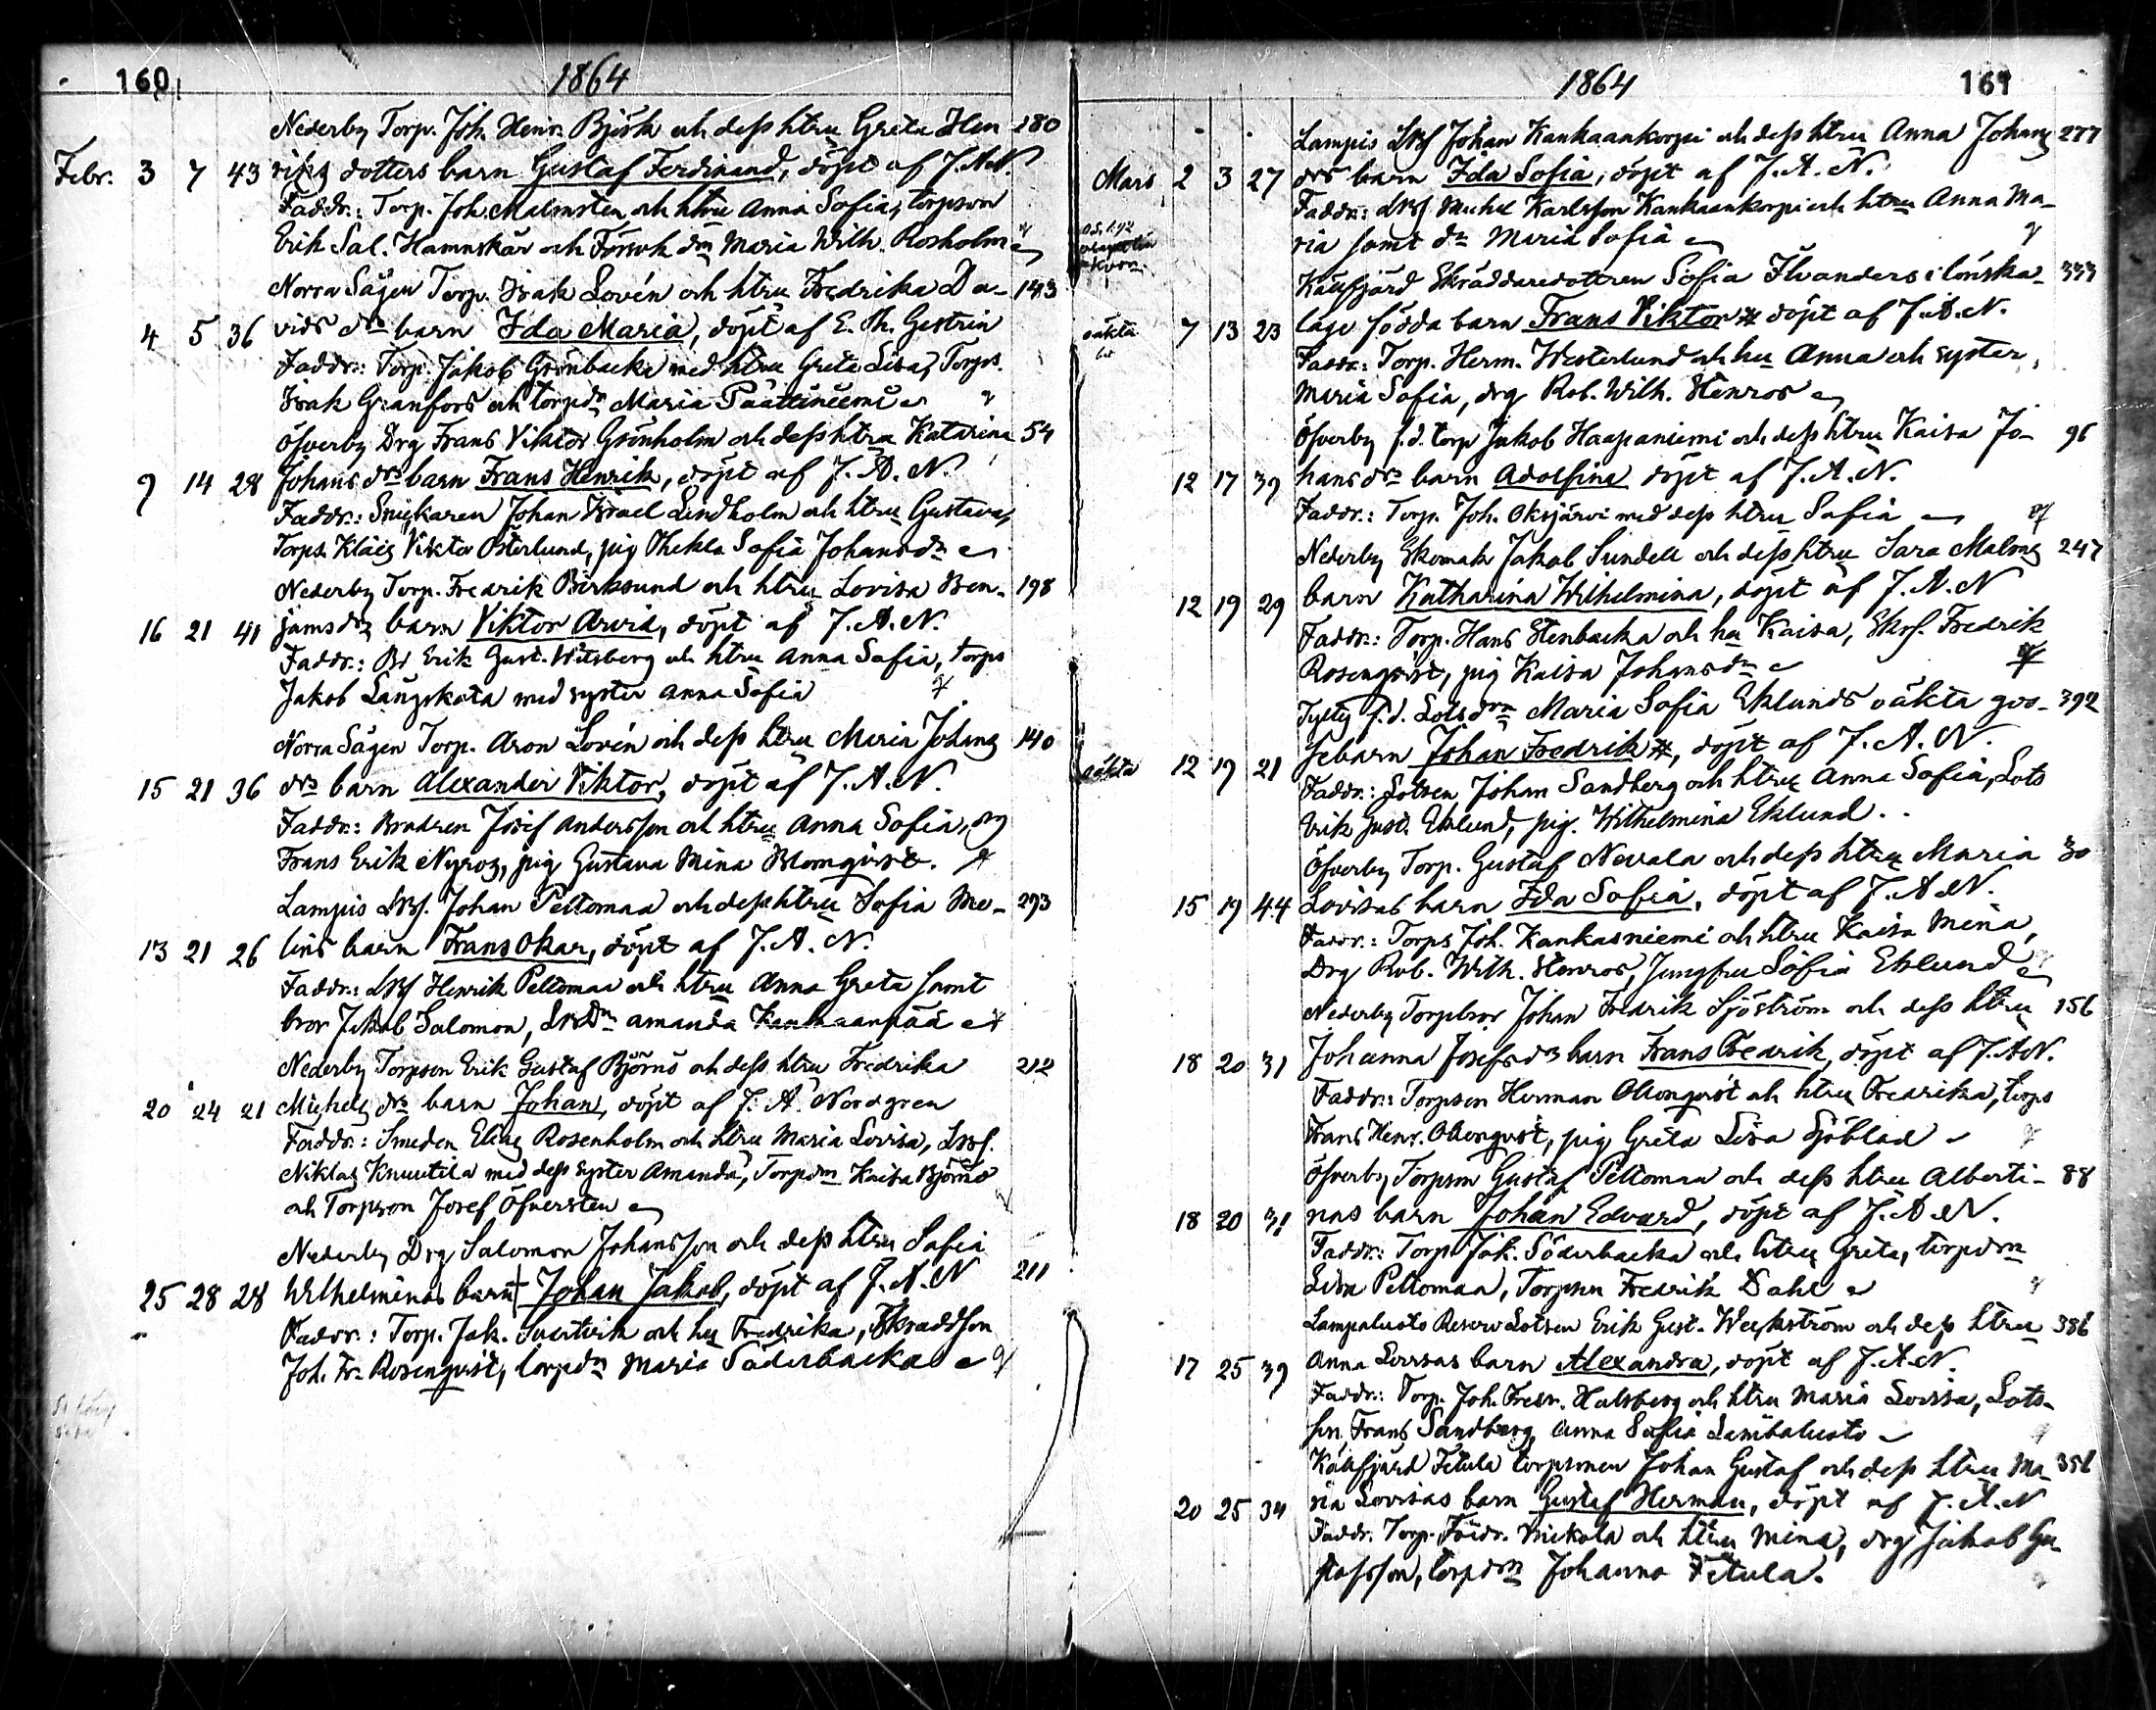 160 1864
Nederby Torp. Joh. Henr. Björk och dess htru Greta Hen 180
Febr. 3 7 43 rikz dotters barn Gustaf Ferdinand, döpt af J.A.N.
Faddr.: Torp. Joh. Malmsten och htru Anna Sofia, torpson
Erik Sal. Hamnskär och dn Maria Wilh. Rosholm
Norra Sägen Torp. Isak Lovén och htru Fredrika Da- 143
4 5 36 vids drs barn Ida Maria, döpt af E. Th. Gestrin
Faddr.: Torp. Jakob Grönbacka med htru Greta Lisa, Torps.
Isak Granfors och torpdn Maria Päättiniemi
Öfverby Drg Frans Viktor Grönholm och dess htru Katarina 54
9 14 28 Johans drs barn Frans Henrik, döpt af J. A. N.
Faddr.: Snickaren Johan Israel Lindholm och htru Gustava,
Torps Viktor Österlund, pig Thekla Sofia Johansdr
Nederby Torp. Fredrik Birksund och htru Lovisa Ben- 198
16 21 41 jamsdrz barn Viktor Arvid, döpt af J. A. N.
Faddr.: Erik Gust. Witsberg och htru Anna Sofia, torps
Jakob Långskata med syster Anna Sofia
Norra Sägen Torp. Aron Lovén och dess htru Maria Johanz 140
15 21 36 drs barn Alexander Viktor, döpt af J. A. N.
Faddr.: Josef Andersson och htru Anna Sofia, drg
Frans Erik Nyroz, pig Gustava Mina Blomqvist.
Lampis Lbf. Johan Peltomaa och dess htru Sofia Me- 293
13 21 26 lins barn Frans Oskar, döpt af J. A. N.
Faddr.: Lbf Henrik Peltomaa och htru Anna Greta samt
bror Jakob Salomon, Amanda Kankaanpää
Nederby Torpson Erik Gustaf Björns och dess htru Fredrika 212
20 24 21 Michelz drs barn Johan, döpt af J. A. Nordgren
Faddr.: Smeden Eliaz Rosenholm och htru Maria Lovisa, Lbf.
Niklaz Knuutila med dess syster Amanda, Torpdn Kaisa Björns
och Torpson Josef Öfversten
Nederby Drg Salomon Johansson och dess htru Sofia 211
25 28 28 Wilhelminas barn Johan Jakob, döpt af J. A. N
Faddr.: Torp. Jak. och hu Fredrika, Skraddson
Joh. Fr. Rosenqvist, torpdn Maria Söderbacka
1864 161
Lampis Lbf Johan Kankaankorpi och dess htru Anna Johanz 277
Mars 2 3 27 drs barn Ida Sofia, döpt af J. A. N.
Faddr.: Lbf Michel Karlsson Kankaankorpi och htru Anna Ma-
ria samt dn Maria Sofia
Källfjärd Skräddaredottren Sofia Ilvanders i lönska- 333
oäkta 7 13 23 läge födda barn Frans Viktor döpt af J. A. N.
Faddr.: Torp. Herm. Westerlund och hu Anna och syster
Maria Sofia, drg Rob. Wilh. Stenros
Öfverby f.d. torp Jakob Haapaniemi och dess htru Kaisa Jo- 96
12 17 39 hans drs barn Adolfina döpt af J. A. N.
Faddr.: Torp. Joh. Oksjärvi med dess htru Sofia
Nederby Skomak Jakob Sundell och dess htru Sara Malmz 247
12 19 29 barn Katharina Wilhelmina, döpt af J. A. N
Faddr.: Torp. Hans Stenbacka och hu Kaisa, Fredrik
Rosenqvist, pig Kaisa Johansdr
f.d. Lotsdrn Maria Sofia Eklunds oäkta gos- 392
oäkta 12 19 21 sebarn Johan Fredrik, döpt af J. A. N.
Faddr.: Lotsen Johan Sandberg och htru Anna Sofia, Lots
Erik Gust. Eklund, pig. Wilhelmina Eklund.
Öfverby Torp. Gustaf Nevala och dess htru Maria 30
15 19 44 Lovisas barn Ida Sofia, döpt af J. A. N.
Faddr.: Torps Joh. Kankasniemi och htru Kaisa Mina,
Drg Rob. Wilh. Stenros, Jungfru Sofia Eklund
Nederby Torpbror Johan Fredrik Sjöström och dess htru 156
18 20 31 Johanna Josefs drs barn Frans Fredrik, döpt af J. A. N.
Faddr.: Torpson Herman Ollonqvist och htru Fredrika, torps
Frans Henr. Ollonqvist, pig Greta Lisa Sjöblad
Öfverby Torpson Gustaf Peltomaa och dess htru Alberti- 88
18 20 31 nas barn Johan Edvard, döpt af J. A. N.
Faddr.: Torp. Jak. Söderbacka och htru Greta, torpdrn
Lisa Peltomaa, Torpson Fredrik Dahl
Lampaluoto Reserv Lotsen Erik Gust. Weckström och dess htru 386
17 25 39 Anna Lovisas barn Alexandra, döpt af J. A. N.
Faddr.: Torp. Joh. Fredr. Halsberg och htru Maria Lovisa, Lots-
son Frans Sandberg, Anna Sofia
Källfjärd Fetula torpsonen Johan Gustaf och dess htru Ma- 356
20 25 34 ria Lovisas barn Gustaf Herman, döpt af J. A. N
Faddr. Torp. Fredr. och htru Mina, drg Jakob Gu-
stafsson, torpdrn Johanna Fetula.